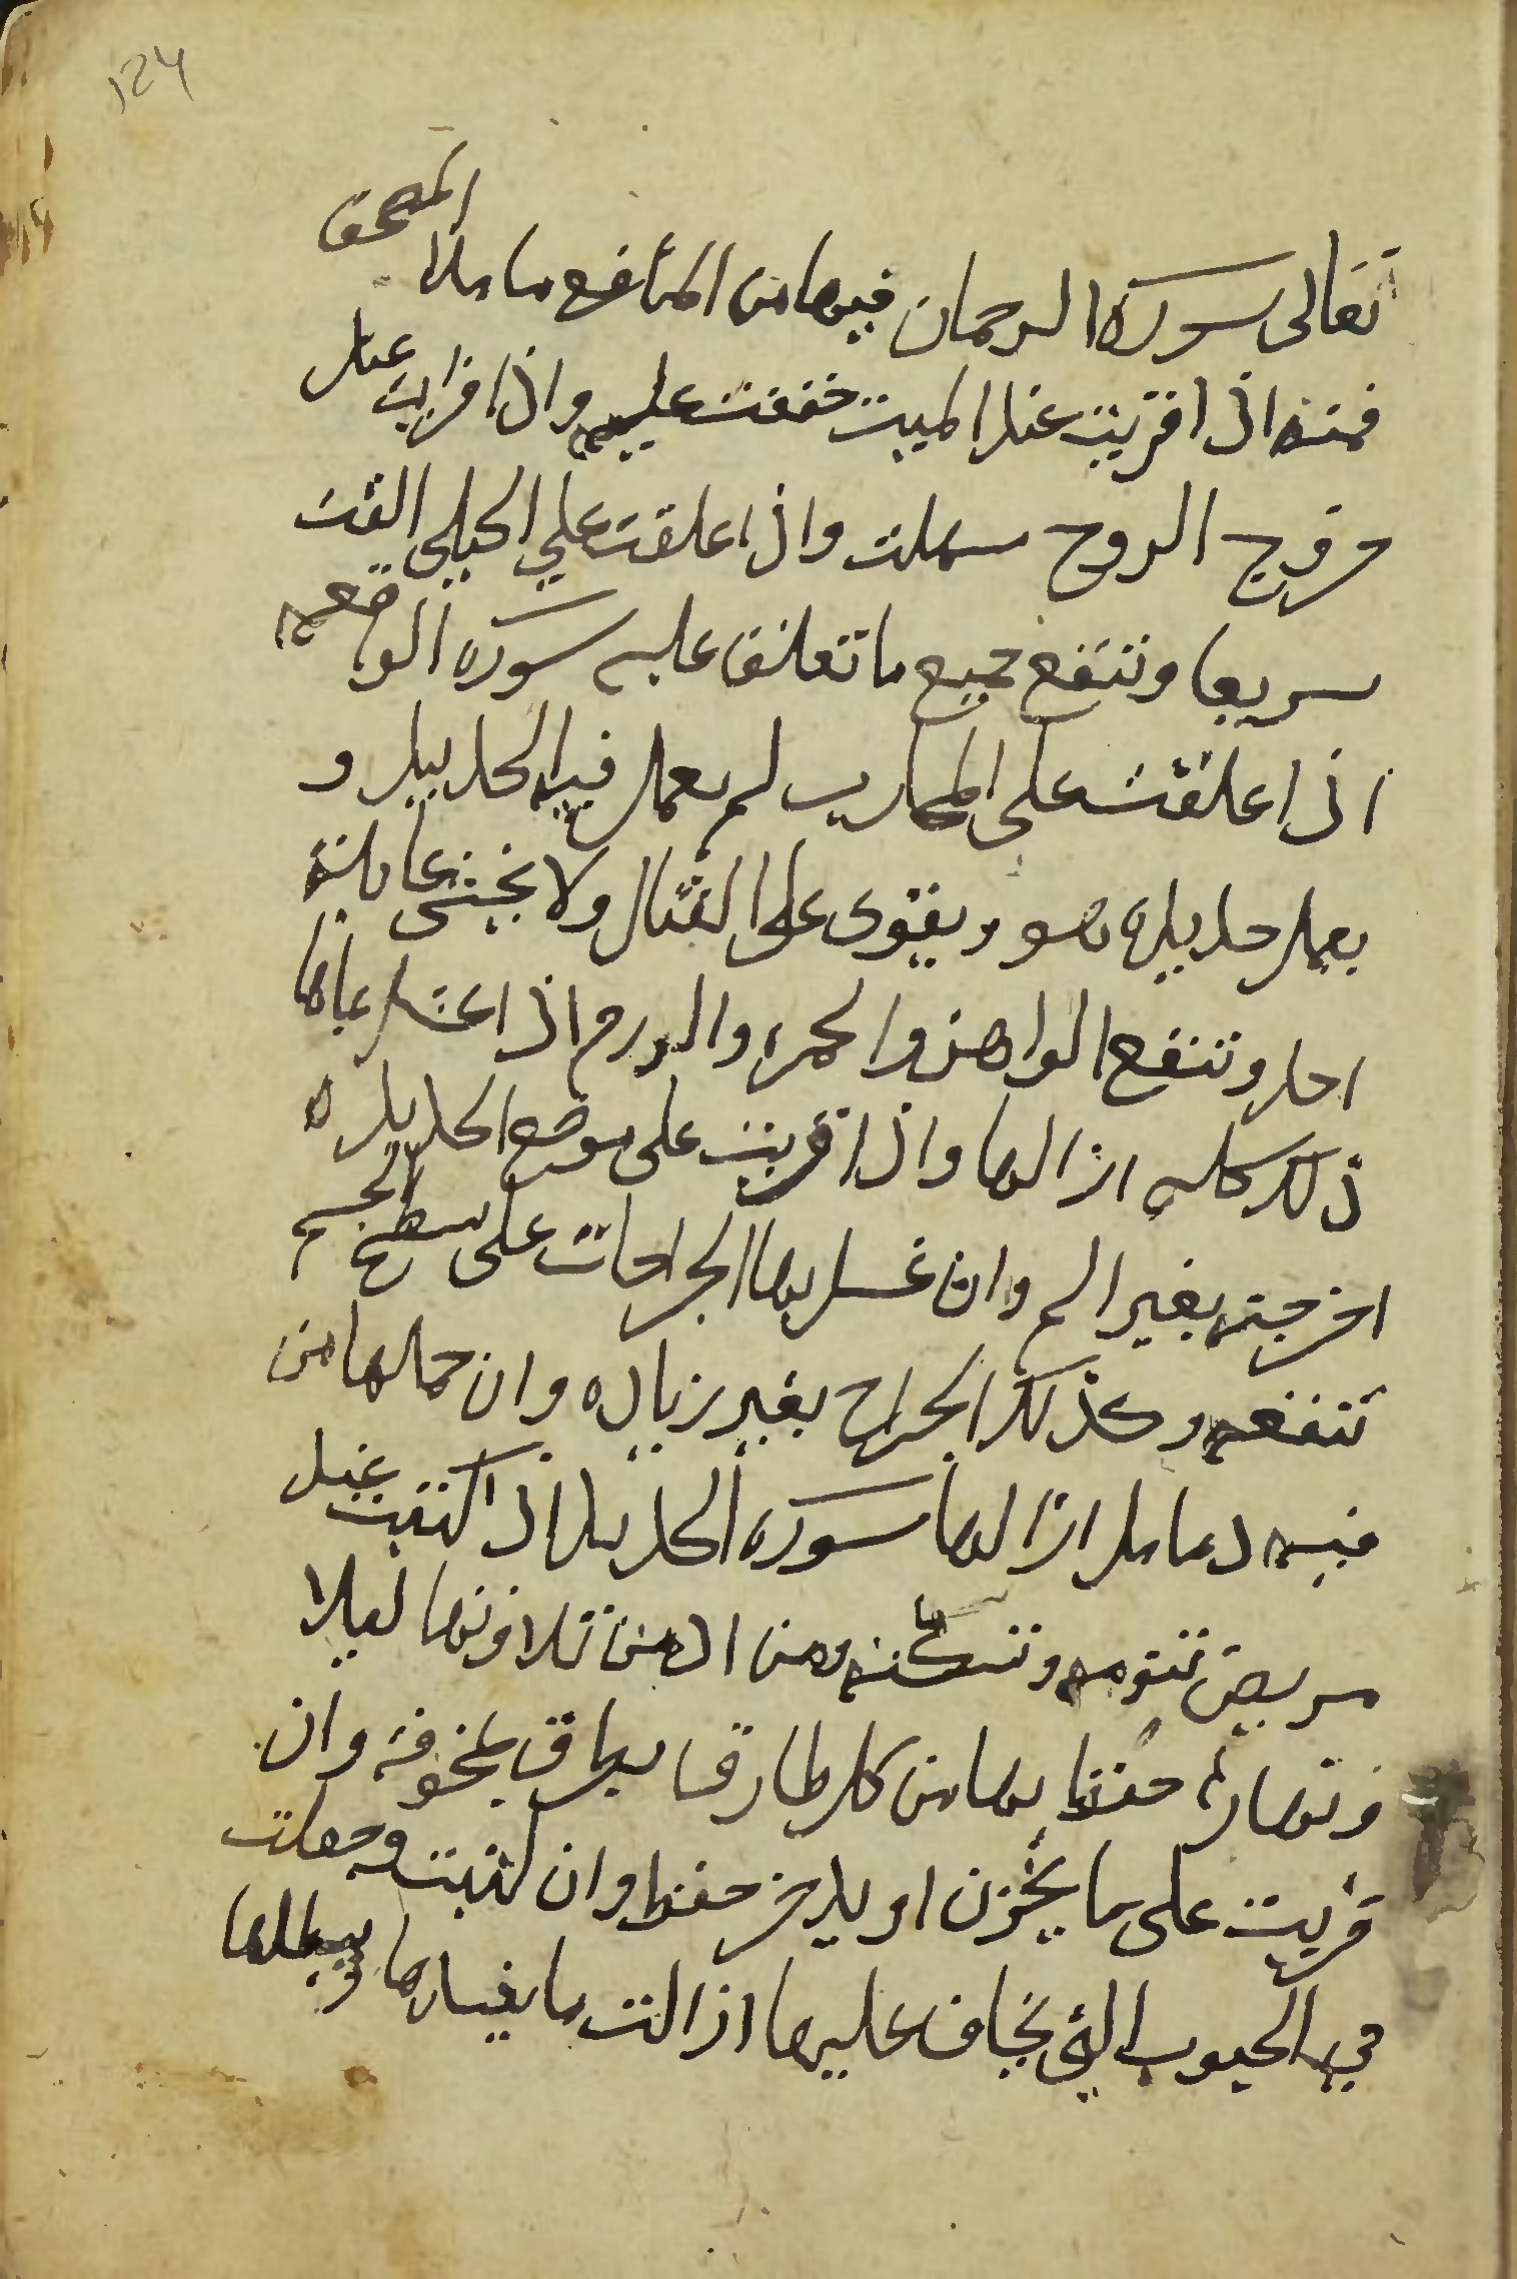 124
تعالى سورة الرحمان فيها من المنافع ما لا
فمنه اذا قريت عند الميت خففت عليه واذا قرات عند
خروج الروح سهلت واذا علقت على الحبلى القت
سريعا وتنفع جميع ما تعلق عليه سورة الواقعه
اذا علقت على المحارب لم يعمل فيه الحديد و
يعمل حديده هو ويقوى على القتال ولا يخشى عاينه
احد وتنفع الواهن والحمره والورم اذا غسل بمائها
ذلك كله ازالها واذا قريت على موضع الحديده
اخرجته بغير الم وان غسل بها الجراحات على سطح الجسم
تنفعه وكذلك الجراح بغير زياده وان حملها من
فيه دمامل ازالها سورة الحديد اذا كتبت عند
مريض تنومه وتسكنه ومن ادمن تلاوتها ليلا
ونهارا حفظ بها من كل طارق يطرق بخوفه وان
قريت على ما يخزن او يدخر حفظ وان كتبت وجعلت
في الحبوب التي يخاف عليها ازالت ما يفسدها ويبطلها